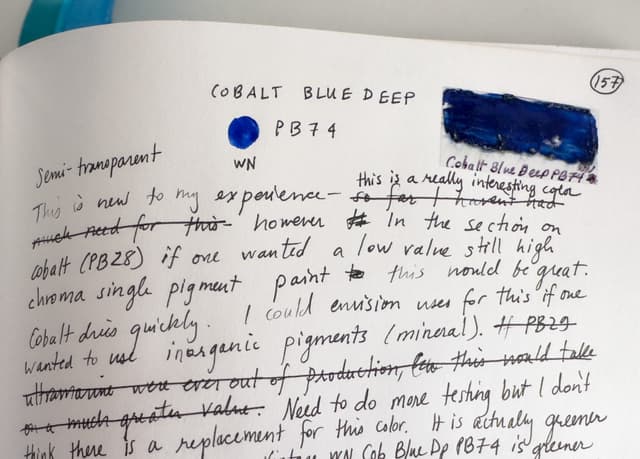 157
COBALT BLUE DEEP
PB74
WN
Cobalt Blue Deep PB74
Semi-transparent
This is new to my experience - this is a really interesting color
so far I haven't had
much need for this - however # In the section on
cobalt (PB28) if one wanted a low value still high
chroma single pigment paint to this would be great.
Cobalt dries quickly. I could envision uses for this if one
wanted to use inorganic pigments (mineral). # PB29
ultramarine were ever out of production, this would take
on a much greater value. Need to do more testing but I don't
think there is a replacement for this color. It is actually greener
WN Cob Blue Dp PB74 is greener